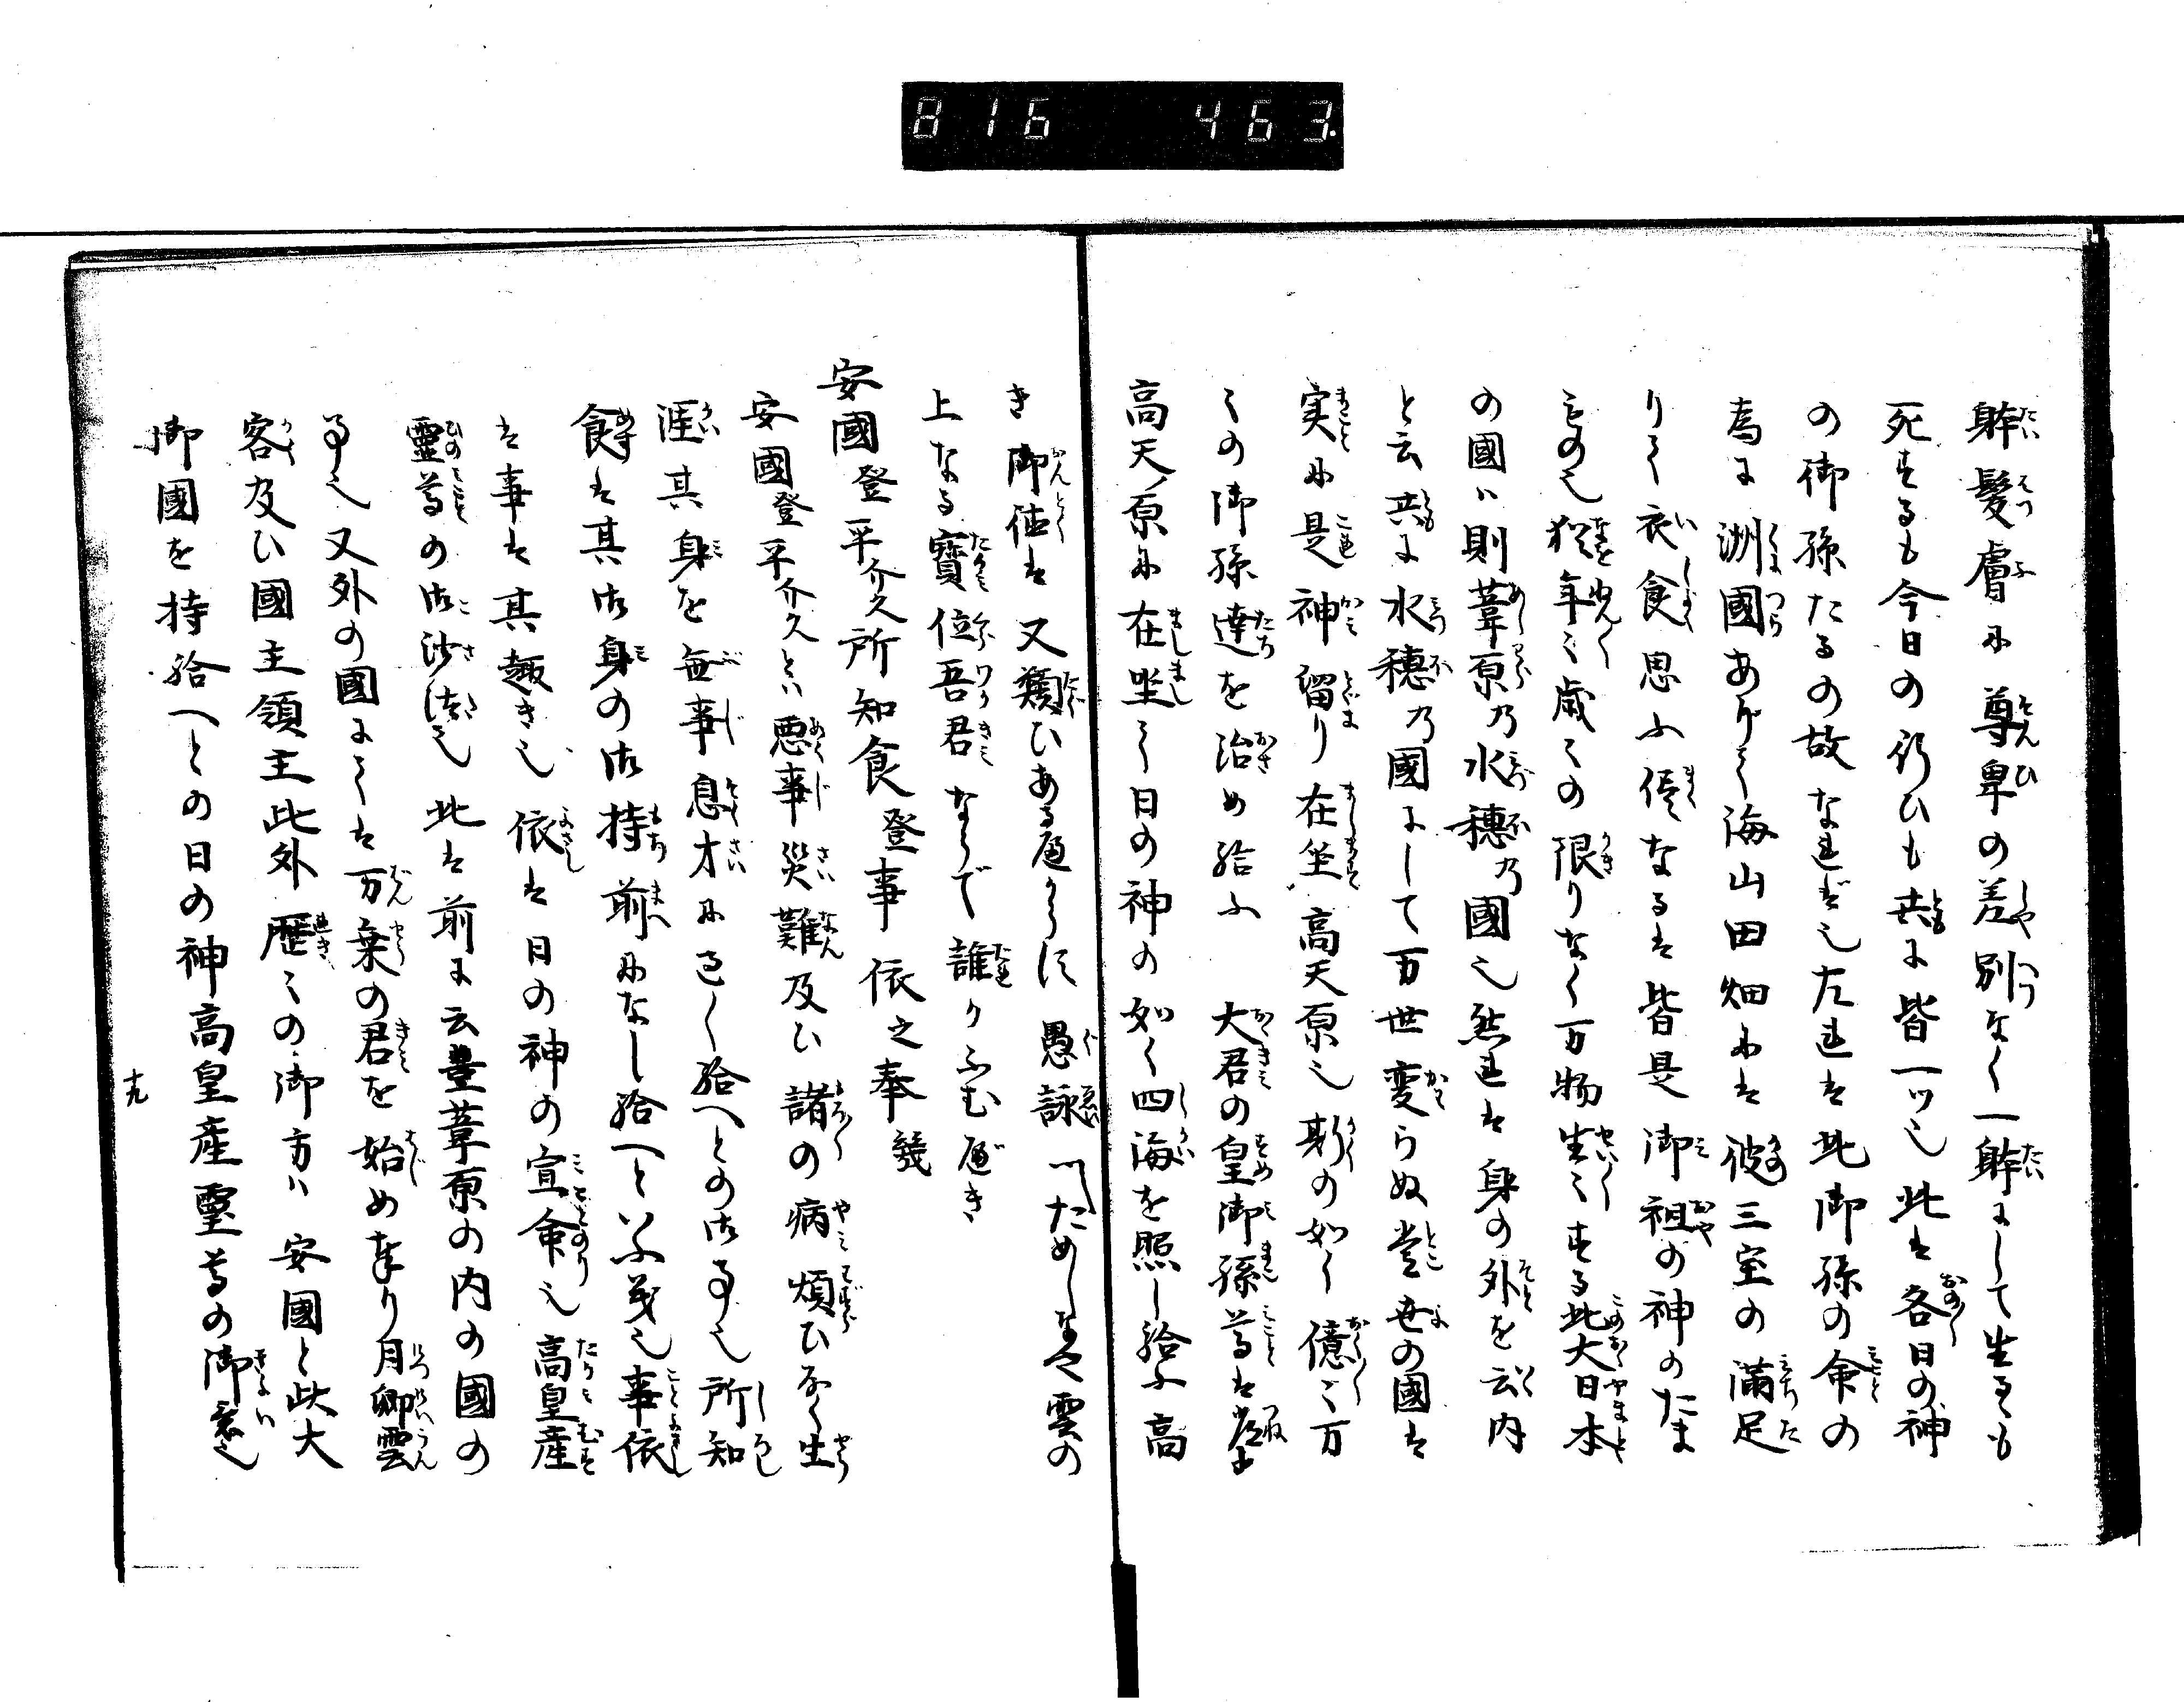 816 463
躰髪膚に尊卑の差別なく一躰にして生るも
死するも今日の行ひも共に皆一ツ也此は各日の神
の御孫たるの故なれば也左れは此御孫の命の
為に洲國ありて海山田畑には彼三室の満足
りて衣食思ふ侭なるは皆是御祖の神のたま
もの也猶年〻歳〻の限りなく万物生〻する此大日本
の國ハ則葦原乃水穂乃國也然れは身の外を云内
と云共に水穂乃國にして万世変らぬ常世の國は
実に是神留り在坐高天原也斯の如く億〻万
〻の御孫達を治め給ふ　大君の皇御孫尊は常
高天原に在坐て日の神の如く四海を照し給ふ高
き御徳は又類ひある遍からす愚詠　ためしなや雲の
上なる寶位吾君ならで誰かふむ遍き
安國登平介久所知食登事依之奉幾
安國登平介久とハ悪事災難及ひ諸の病煩ひなく生
涯其身を無事息才に過し給へとの御事也所知
食は其御身の御持前になし給へといふ義也事依
は事は其趣き也依は日の神の宣命也高皇産
靈尊の御沙汰也此は前に云豊葦原の内の國の
事也又外の國にては万乗の君を始め奉り月卿雲
客及ひ國主領主此外歴〻の御方ハ安國と此大
御國を持給へとの日の神高皇産靈尊の御意也
十九